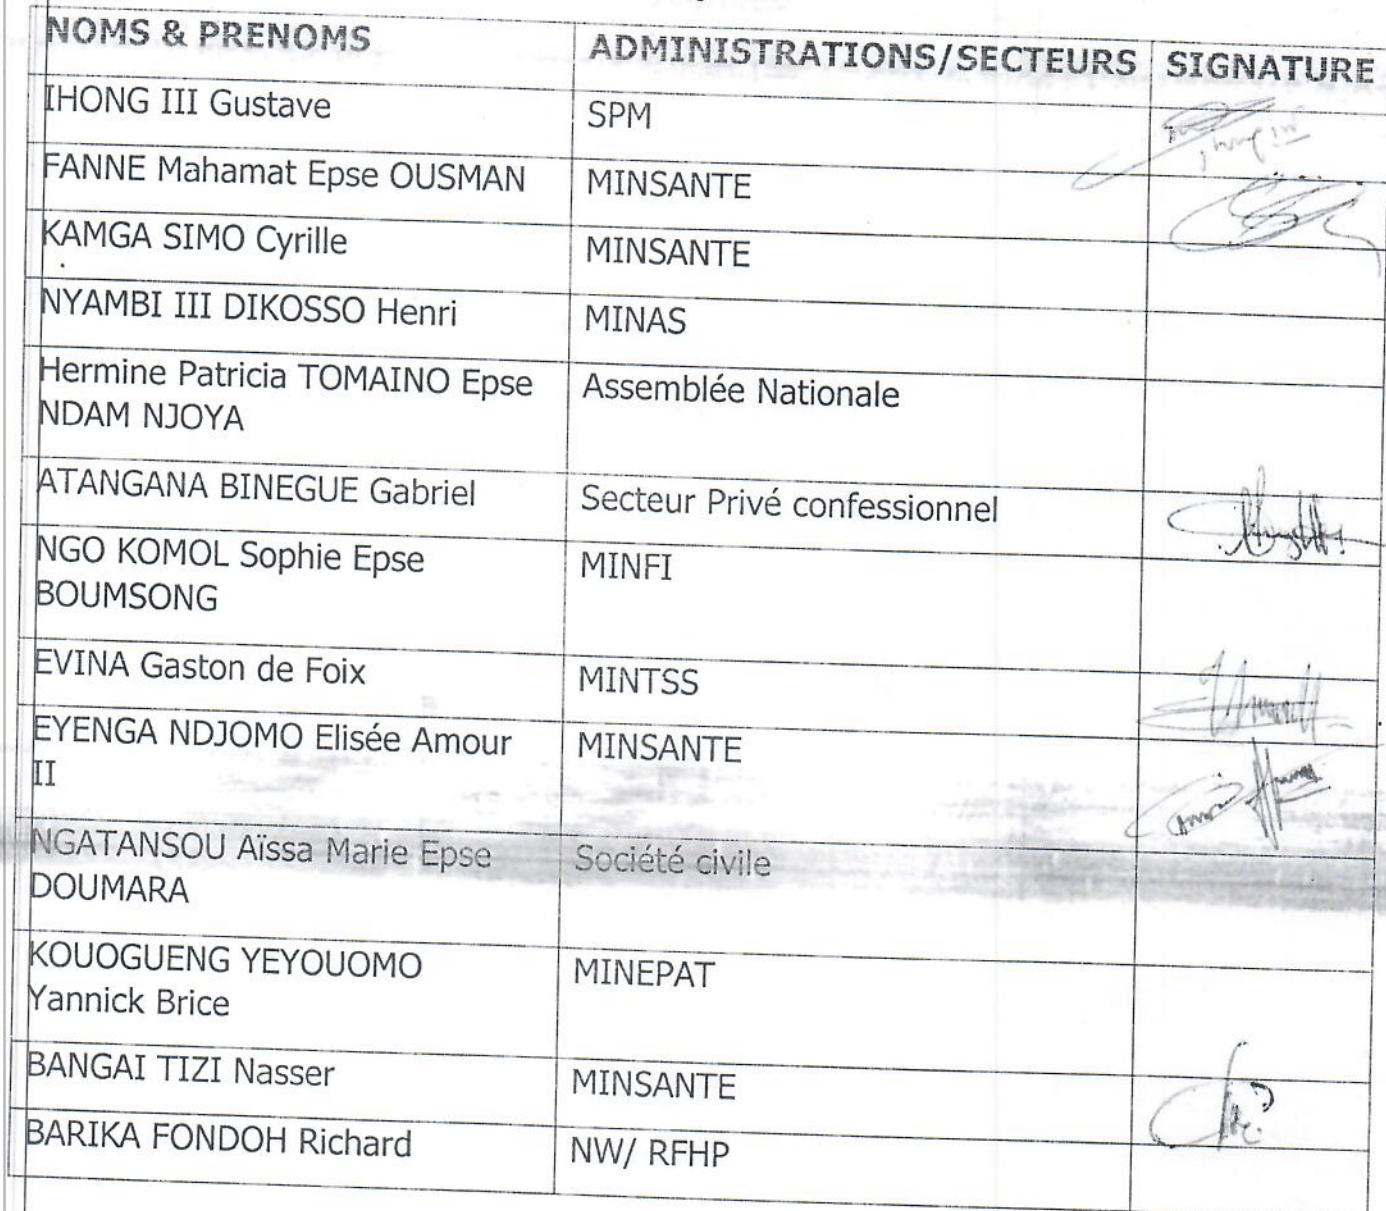 NOMS & PRENOMS ADMINISTRATIONS/SECTEURS SIGNATURE
IHONG III Gustave SPM
FANNE Mahamat Epse OUSMAN MINSANTE
KAMGA SIMO Cyrille MINSANTE
NYAMBI III DIKOSSO Henri MINAS
Hermine Patricia TOMAINO Epse Assemblée Nationale
NDAM NJOYA
ATANGANA BINEGUE Gabriel Secteur Privé confessionnel
NGO KOMOL Sophie Epse MINFI
BOUMSONG
EVINA Gaston de Foix MINTSS
EYENGA NDJOMO Elisée Amour MINSANTE
II
NGATANSOU Aïssa Marie Epse Société civile
DOUMARA
KOUOGUENG YEYOUOMO MINEPAT
Yannick Brice
BANGAI TIZI Nasser MINSANTE
BARIKA FONDOH Richard NW/ RFHP